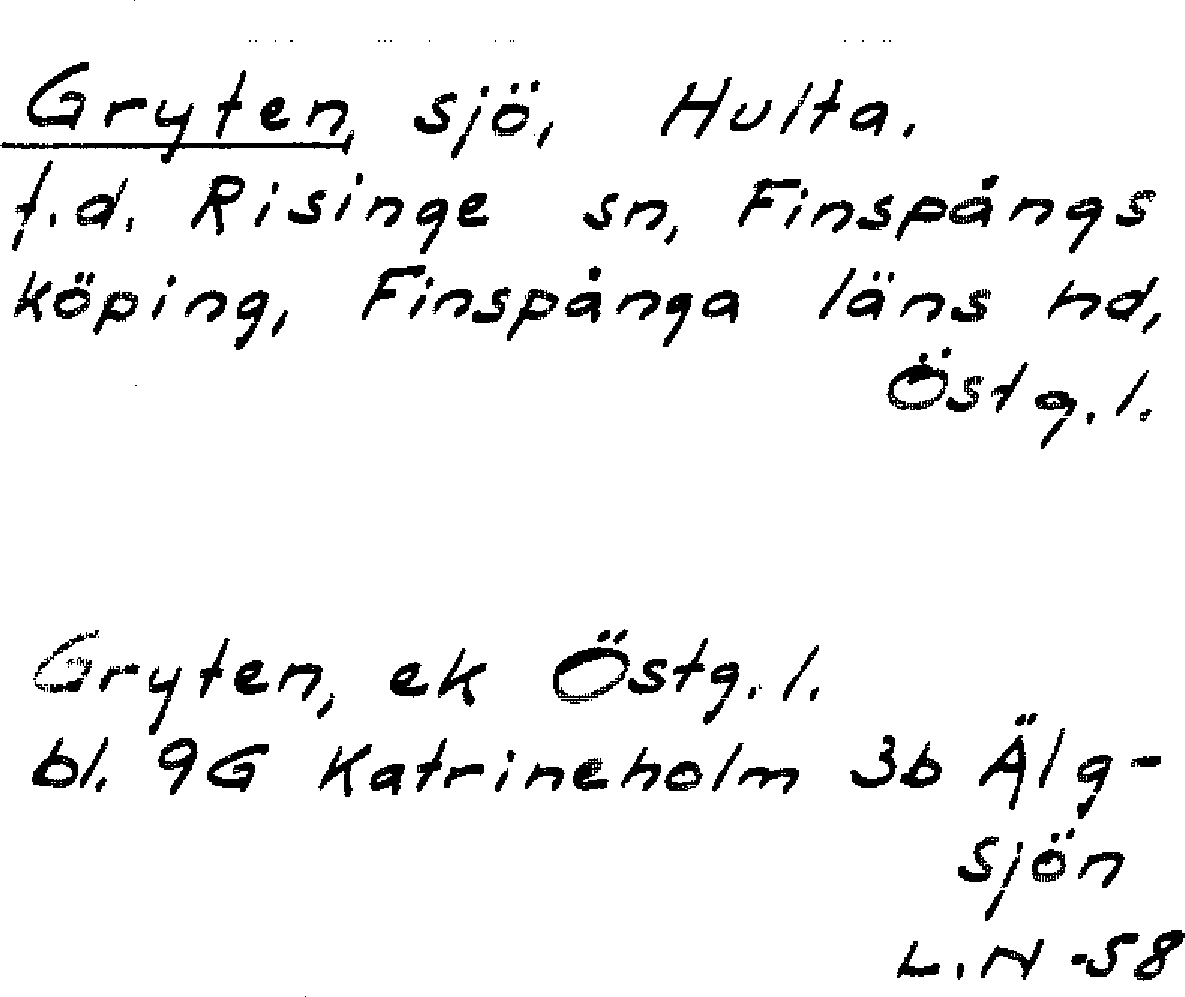 Gryten, sjö, Hulta.
f.d. Risinge sn, Finspångs
köping, Finspånga läns hd,
Östg.l.
Gryten, ek Östg.l.
bl. 9G Katrineholm 3b Älg-
sjön
L.N -58